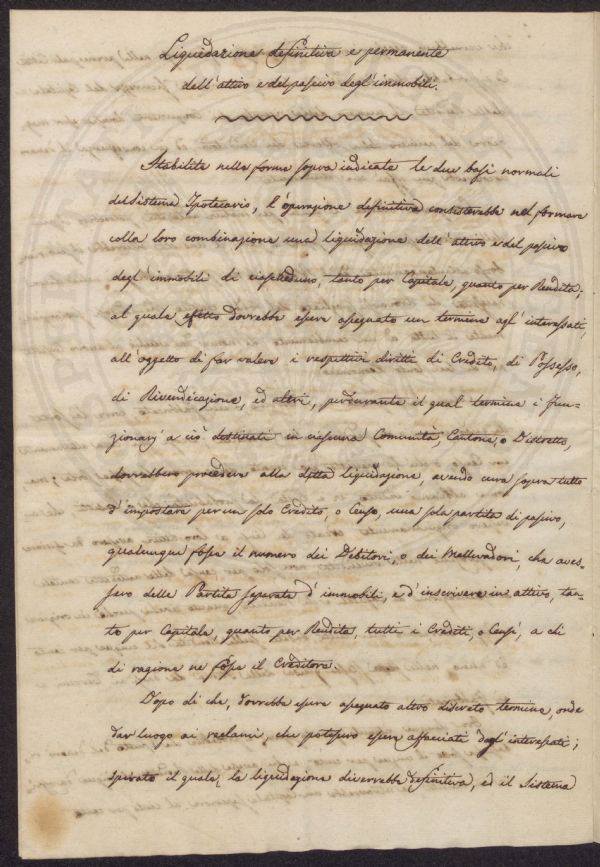 Liquidazione definitiva e permanente
dell'attivo e del passivo degl'immobili.
Stabilite nella forma sopra indicata le due basi normali
del Sistema Ipotecario, l'operazione definitiva consisterebbe nel formare
colla loro combinazione una liquidazione dell'attivo e del passivo
degl'immobili di ciascheduno, tanto per Capitale, quanto per Rendita;
al quale effetto dovrebbe essere assegnato un termine agl'interessati,
all'oggetto di far valere i respettivi diritti di Credito, di Possesso,
di Rivendicazione, ed altri, perdurante il qual termine i Fun-
zionarj a ciò destinati in ciascuna Comunità, Cantone, o Distretto,
dovrebbero procedere alla detta liquidazione, avendo cura sopra tutto
d'impostare per un solo Credito, o Censo, una sola partita di passivo,
qualunque fosse il numero dei Debitori, o dei Mallevadori, che aves-
sero delle Partite separate d'immobili, e d'inscrivere in attivo, tan-
to per Capitale, quanto per Rendita, tutti i Crediti, o Censi, a chi
di ragione ne fosse il Creditore.
Dopo di che, dovrebbe essere assegnato altro discreto termine, onde
dar luogo ai reclami, che potessero essere affacciati dagl'interessati;
spirato il quale, la liquidazione diverrebbe definitiva, ed il Sistema